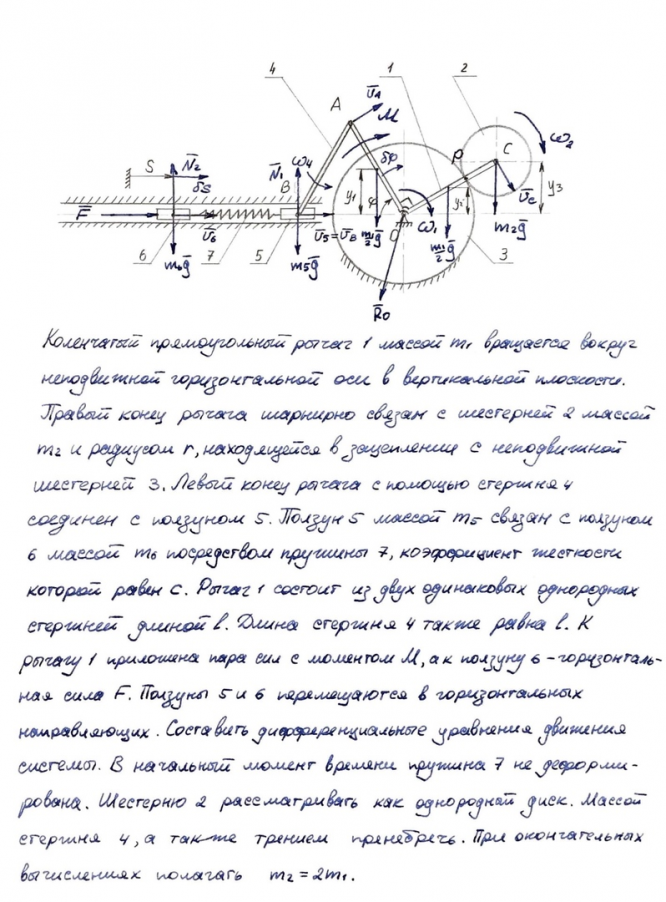 4
1
2
A
V̄A
M
ω2
P
C
S
N̄2
δs
N̄1
ω4
B
y1
δφ
φ
y2
V̄c
y3
F̄
V̄6
V̄5=V̄B
m1/2 ḡ
O
ω1
m1/2 ḡ
m2ḡ
6
m6ḡ
7
5
m5ḡ
R̄o
3
Коленчатый прямоугольный рычаг 1 массой m1 вращается вокруг
неподвижной горизонтальной оси в вертикальной плоскости.
Правый конец рычага шарнирно связан с шестерней 2 массой
m2 и радиусом r, находящейся в зацеплении с неподвижной
шестерней 3. Левый конец рычага с помощью стержня 4
соединен с ползуном 5. Ползун 5 массой m5 связан с ползуном
6 массой m6 посредством пружины 7, коэффициент жесткости
которой равен c. Рычаг 1 состоит из двух одинаковых однородных
стержней длиной l. Длина стержня 4 также равна l. К
рычагу 1 приложена пара сил с моментом M, а к ползуну 6 – горизонталь-
ная сила F. Ползуны 5 и 6 перемещаются в горизонтальных
направляющих. Составить дифференциальные уравнения движения
системы. В начальный момент времени пружина 7 не деформи-
рована. Шестерню 2 рассматривать как однородный диск. Массой
стержня 4, а также трением пренебречь. При окончательных
вычислениях полагать m2 = 2m1.